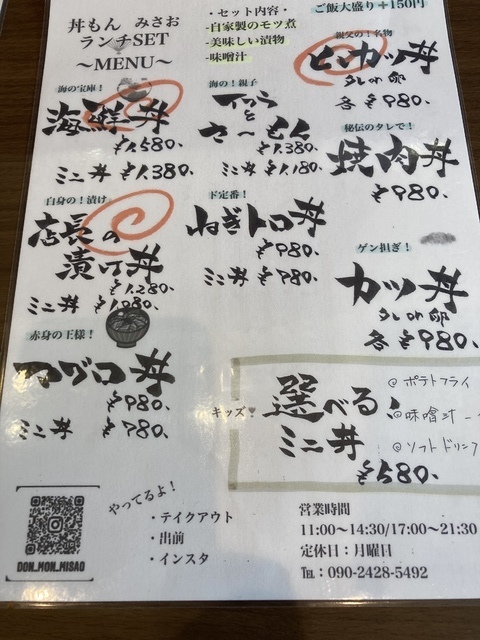 丼もん みさお
ランチSET
〜MENU〜
・セット内容・
-自家製のモツ煮
-美味しい漬物
-味噌汁
ご飯大盛り+150円
海の宝庫！
海鮮丼
¥1,580-
ミニ丼 ¥1,380-
海の！親子
イクラ
と
サーもん
¥1,380-
ミニ丼 ¥1,180-
親父の！名物
ヒレカツ丼
タレ or 卵
各 ¥980-
秘伝のタレで！
焼肉丼
¥980-
自身の！漬け
店長の
漬け丼
¥1,280-
ミニ丼 ¥1,080-
ド定番！
ねぎトロ丼
¥980-
ミニ丼 ¥780-
ゲン担ぎ！
カツ丼
タレ or 卵
各 ¥980-
赤身の王様！
マグロ丼
¥980-
ミニ丼 ¥780-
キッズ♥
選べる！
ミニ丼
¥580-
◎ポテトフライ
◎味噌汁
◎ソフトドリンク
DON_MON_MISAO
やってるよ！
・テイクアウト
・出前
・インスタ
営業時間
11:00〜14:30/17:00〜21:30
定休日：月曜日
℡：090-2428-5492